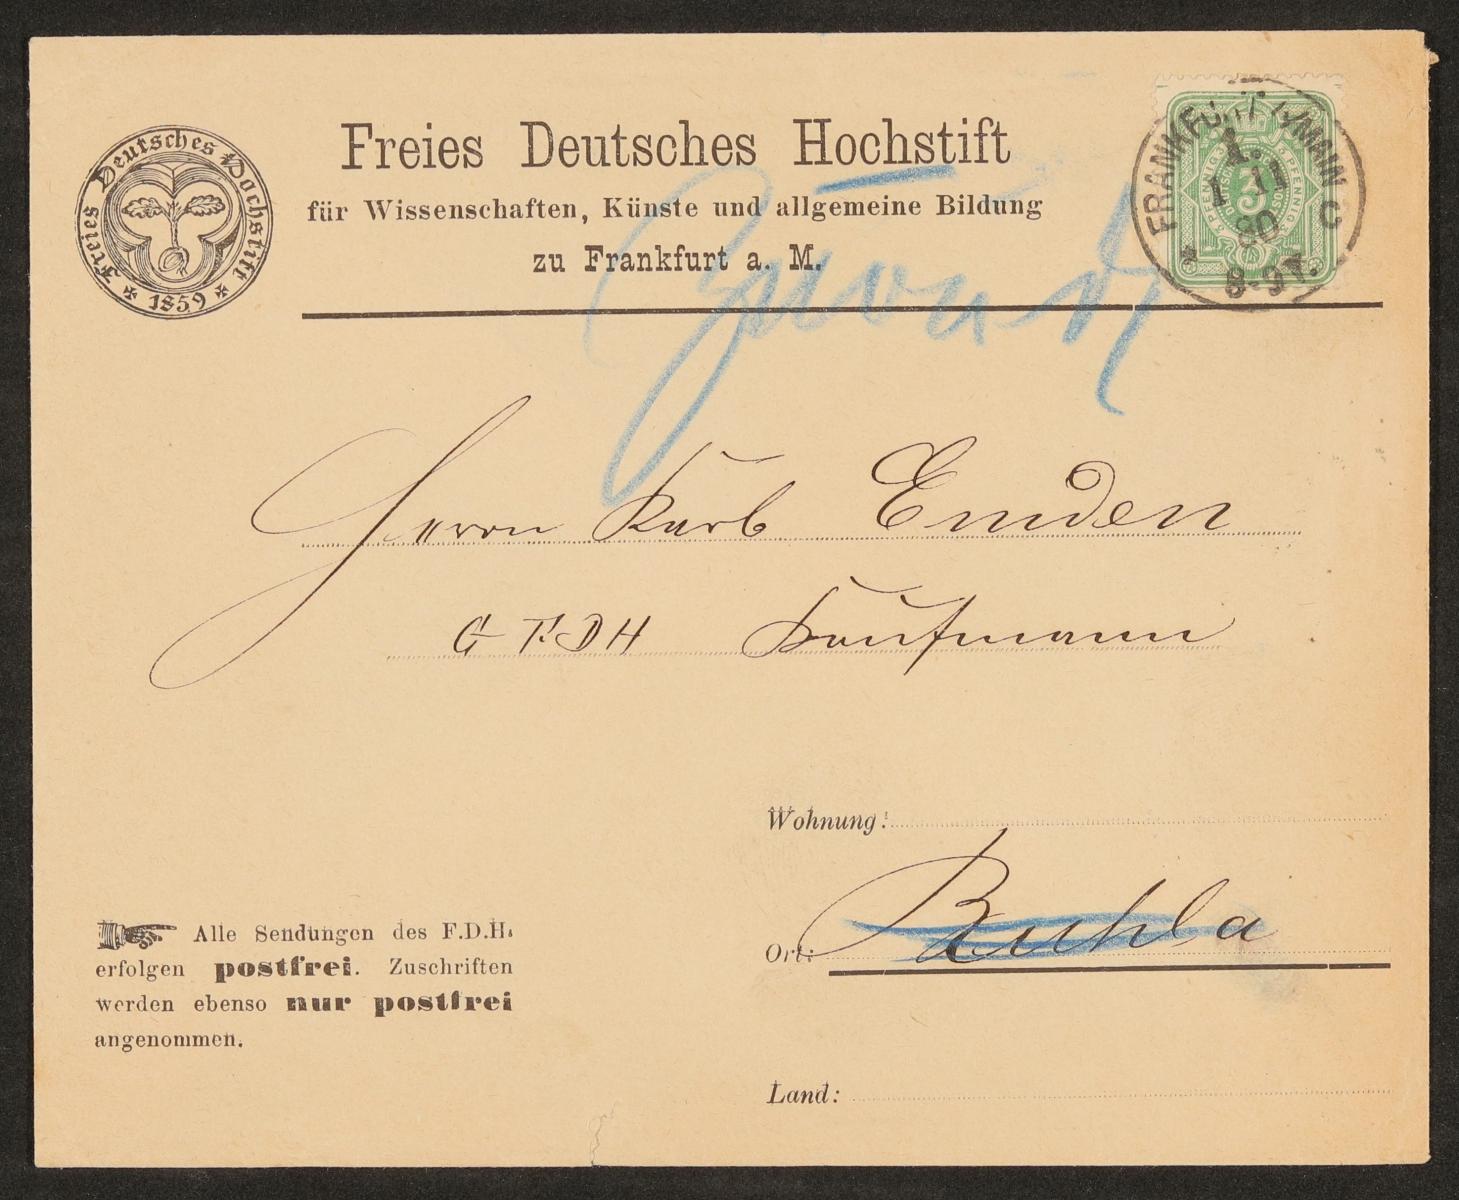 Freies Deutsches Hochstift
* 1859 *
Freies Deutsches Hochstift
für Wissenschaften, Künste und allgemeine Bildung
zu Frankfurt a. M.
FRANKFURT A/MAIN
1.
1 11
80
8-9 V.
3 PFENNIG
3
Zurück
Herrn Karl Emden
G F.D H Kaufmann
Wohnung:
Ort: Ruhla
Land:
Alle Sendungen des F.D.H.
erfolgen postfrei. Zuschriften
werden ebenso nur postfrei
angenommen.